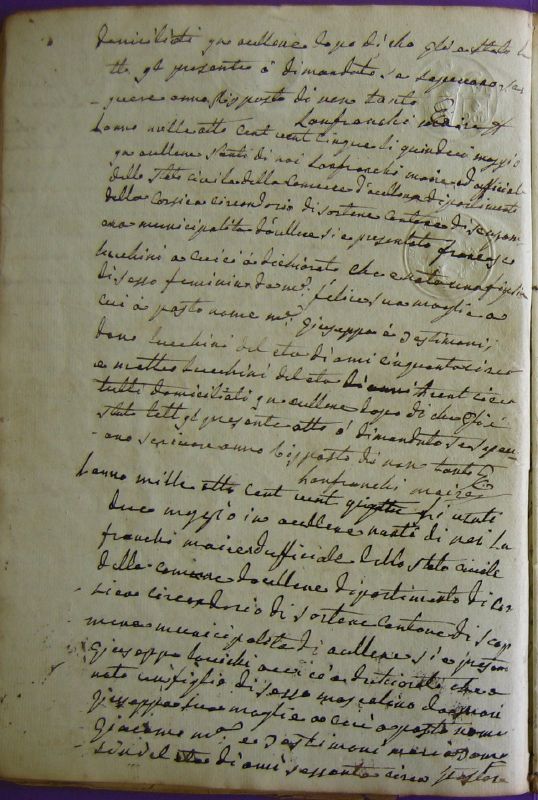 domiciliati qua aullene dopo di che gliè stato le
tto gl presente è dimandato se sapevano scri
vere anno risposto di non tanto
Lanfranchi maire
Lanno mille otto cent vent cinque li quindeci maggio
qua aullene nanti di noi Lanfranchi maire ed ufficiale
dello stato civile della comune d'aullene dipartimento
della Corsica circondario di sartene cantone di scopam
ena municipalità d'aullene si è presentato francesco
lucchini a cui ci à dichiarato che è nato una figlia
di sesso feminino da mª felice sua moglie a
cui à posto nome mª giuseppa è testimonj
lucchini del età di anni cinquanta circa
e matteo lucchini del età di anni trent circa
tutti domiciliati qua aullene dopo di che gliè
stato letto gl presente atto è dimandato se sapev
ano scrivere anno risposto di non tanto
Lanfranchi maire
Lanno mille otto cent vent li venti
due maggio in aullene nanti di noi La
franchi maire ed ufficiale dello stato civile
della comune d'aullene dipartimento di Cor
sica circondario di sartene cantone di scopa
mena municipalità di aullene si è presen
giuseppo a cui ci à dichiarato che è
nato un figlio di sesso mascolino da mari
giuseppa sua moglie a cui à posto nome
giacomo mª e testimoni
del età di anni sessanta circa pastore